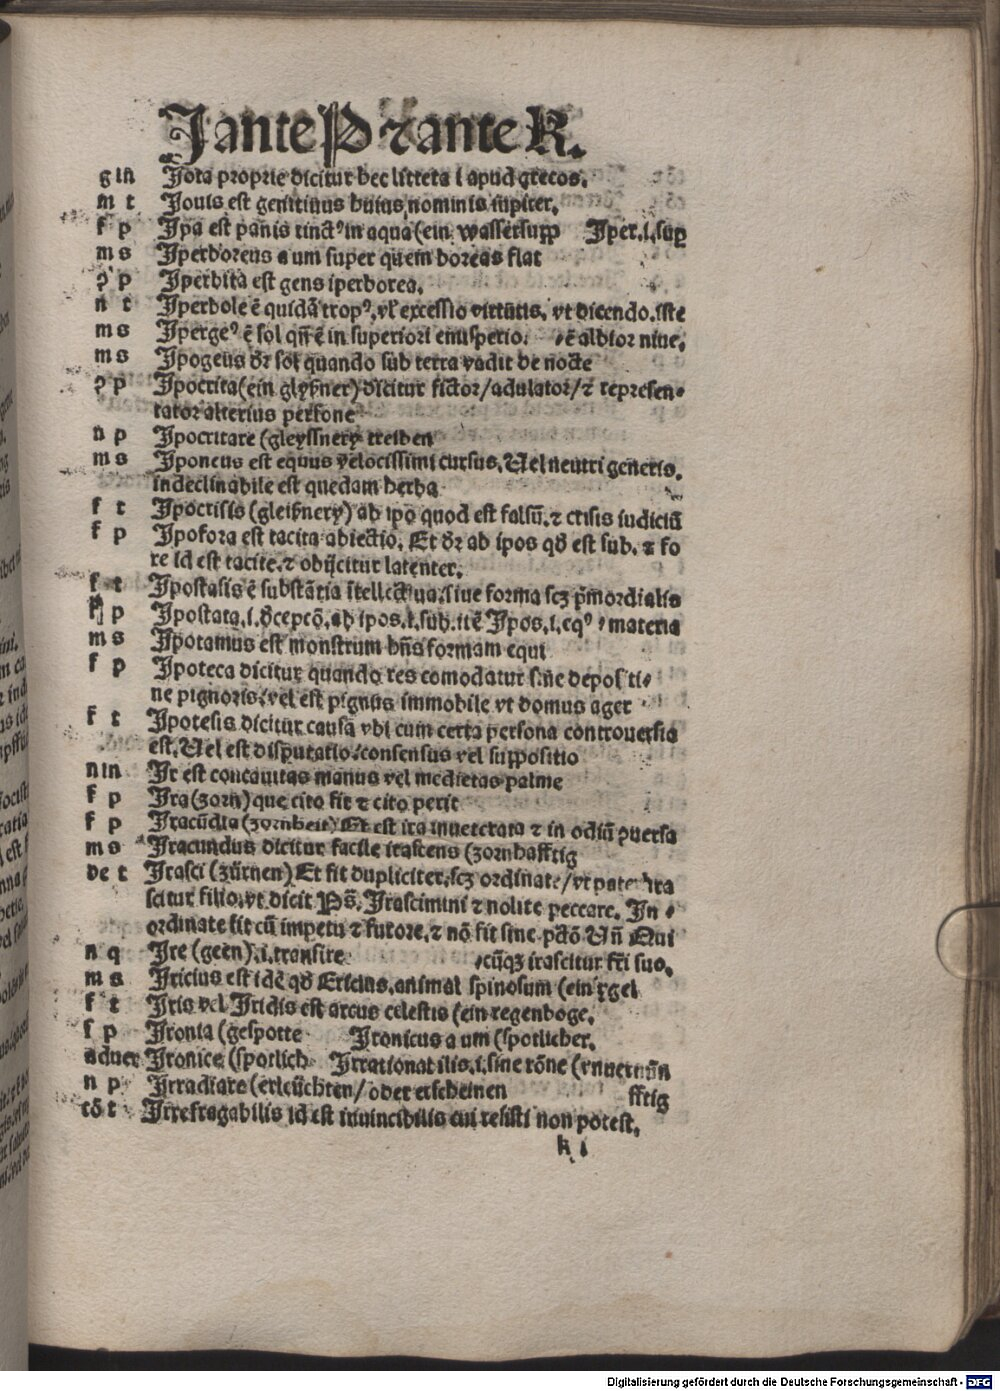 J ante P ⁊ ante R.
g in Jota proprie dicitur hec littera i apud grecos.
m t Jouis est genitiuus huius nominis iupiter.
f p Jpa est panis tinctꝰ in aqua (ein wassersupp Jper.i.sup
m s Jperboreus a um super quem boreas flat
ꝯ p Jperbita est gens iperborea.
n t Jperbole ē quidā tropꝰ, vel excessio virtutis, vt dicendo. iste
m s Jpergeꝰ ē sol qn̄ ē in superiori emisperio. ē albior niue.
m s Jpogeus dr̄ sol quando sub terra vadit de nocte
ꝯ p Jpocrita (ein glyßner) dicitur fictor/adulator/⁊ represen-
tator alterius persone
n p Jpocritare (gleyssnery treiben
m s Jponeus est equus velocissimi cursus. Uel neutri generis.
indeclinabile est quedam herba
f t Jpocrisis (gleißnery) ab ipo quod est falsū. ⁊ crisis iudiciū
f p Jpofora est tacita abiectio. Et dr̄ ab ipos qd̄ est sub. ⁊ fo
re id est tacite. ⁊ obijcitur latenter.
f t Jpostasis ē substātia ītellectiua. siue forma scꝫ pͥmordialis
f p Jpostata.i. ab ipos.i.sub. itē Jpos.i.eqꝰ materia
m s Jpotamus est monstrum hn̄s formam equi
f p Jpoteca dicitur quando res comodatur sine depositi-
ne pignoris. vel est pignus immobile vt domus ager
f t Jpotesis dicitur causa vbi cum certa persona controuersia
est. Uel est disputatio. consensus vel suppositio
n in Jr est concauitas manus vel medietas palme
f p Jra (zorn) que cito fit ⁊ cito perit
f p Jracūdia (zornheit) Et est ira inueterata ⁊ in odiū ꝑuersa
m s Jracundus dicitur facile irascens (zornhafftig
de t Jrasci (zürnen) Et fit dupliciter. scꝫ ordinate/vt pater ira
scitur filio. vt dicit Ps̄. Jrascimini ⁊ nolite peccare. Jn-
ordinate fit cū impetu ⁊ furore. ⁊ nō fit sine pctō Un̄ Qui
n q Jre (geen).i.transire cūqꝫ irascitur fr̄i suo.
m s Jricius est idē qd̄ Ericius. animal spinosum (ein ygel
f t Jris vel Jridis est arcus celestis (ein regenboge.
f p Jronia (gespotte Jronicus a um (spotlicher.
aduer Jronice (spotlich Jrrationabilis.i.sine rōne (vnuernūn
n p Jrradiare (erleüchten/oder erscheinen fftig
cō t Jrrefragabilis id est inuincibilis cui resisti non potest.
k i
Digitalisierung gefördert durch die Deutsche Forschungsgemeinschaft - DFG